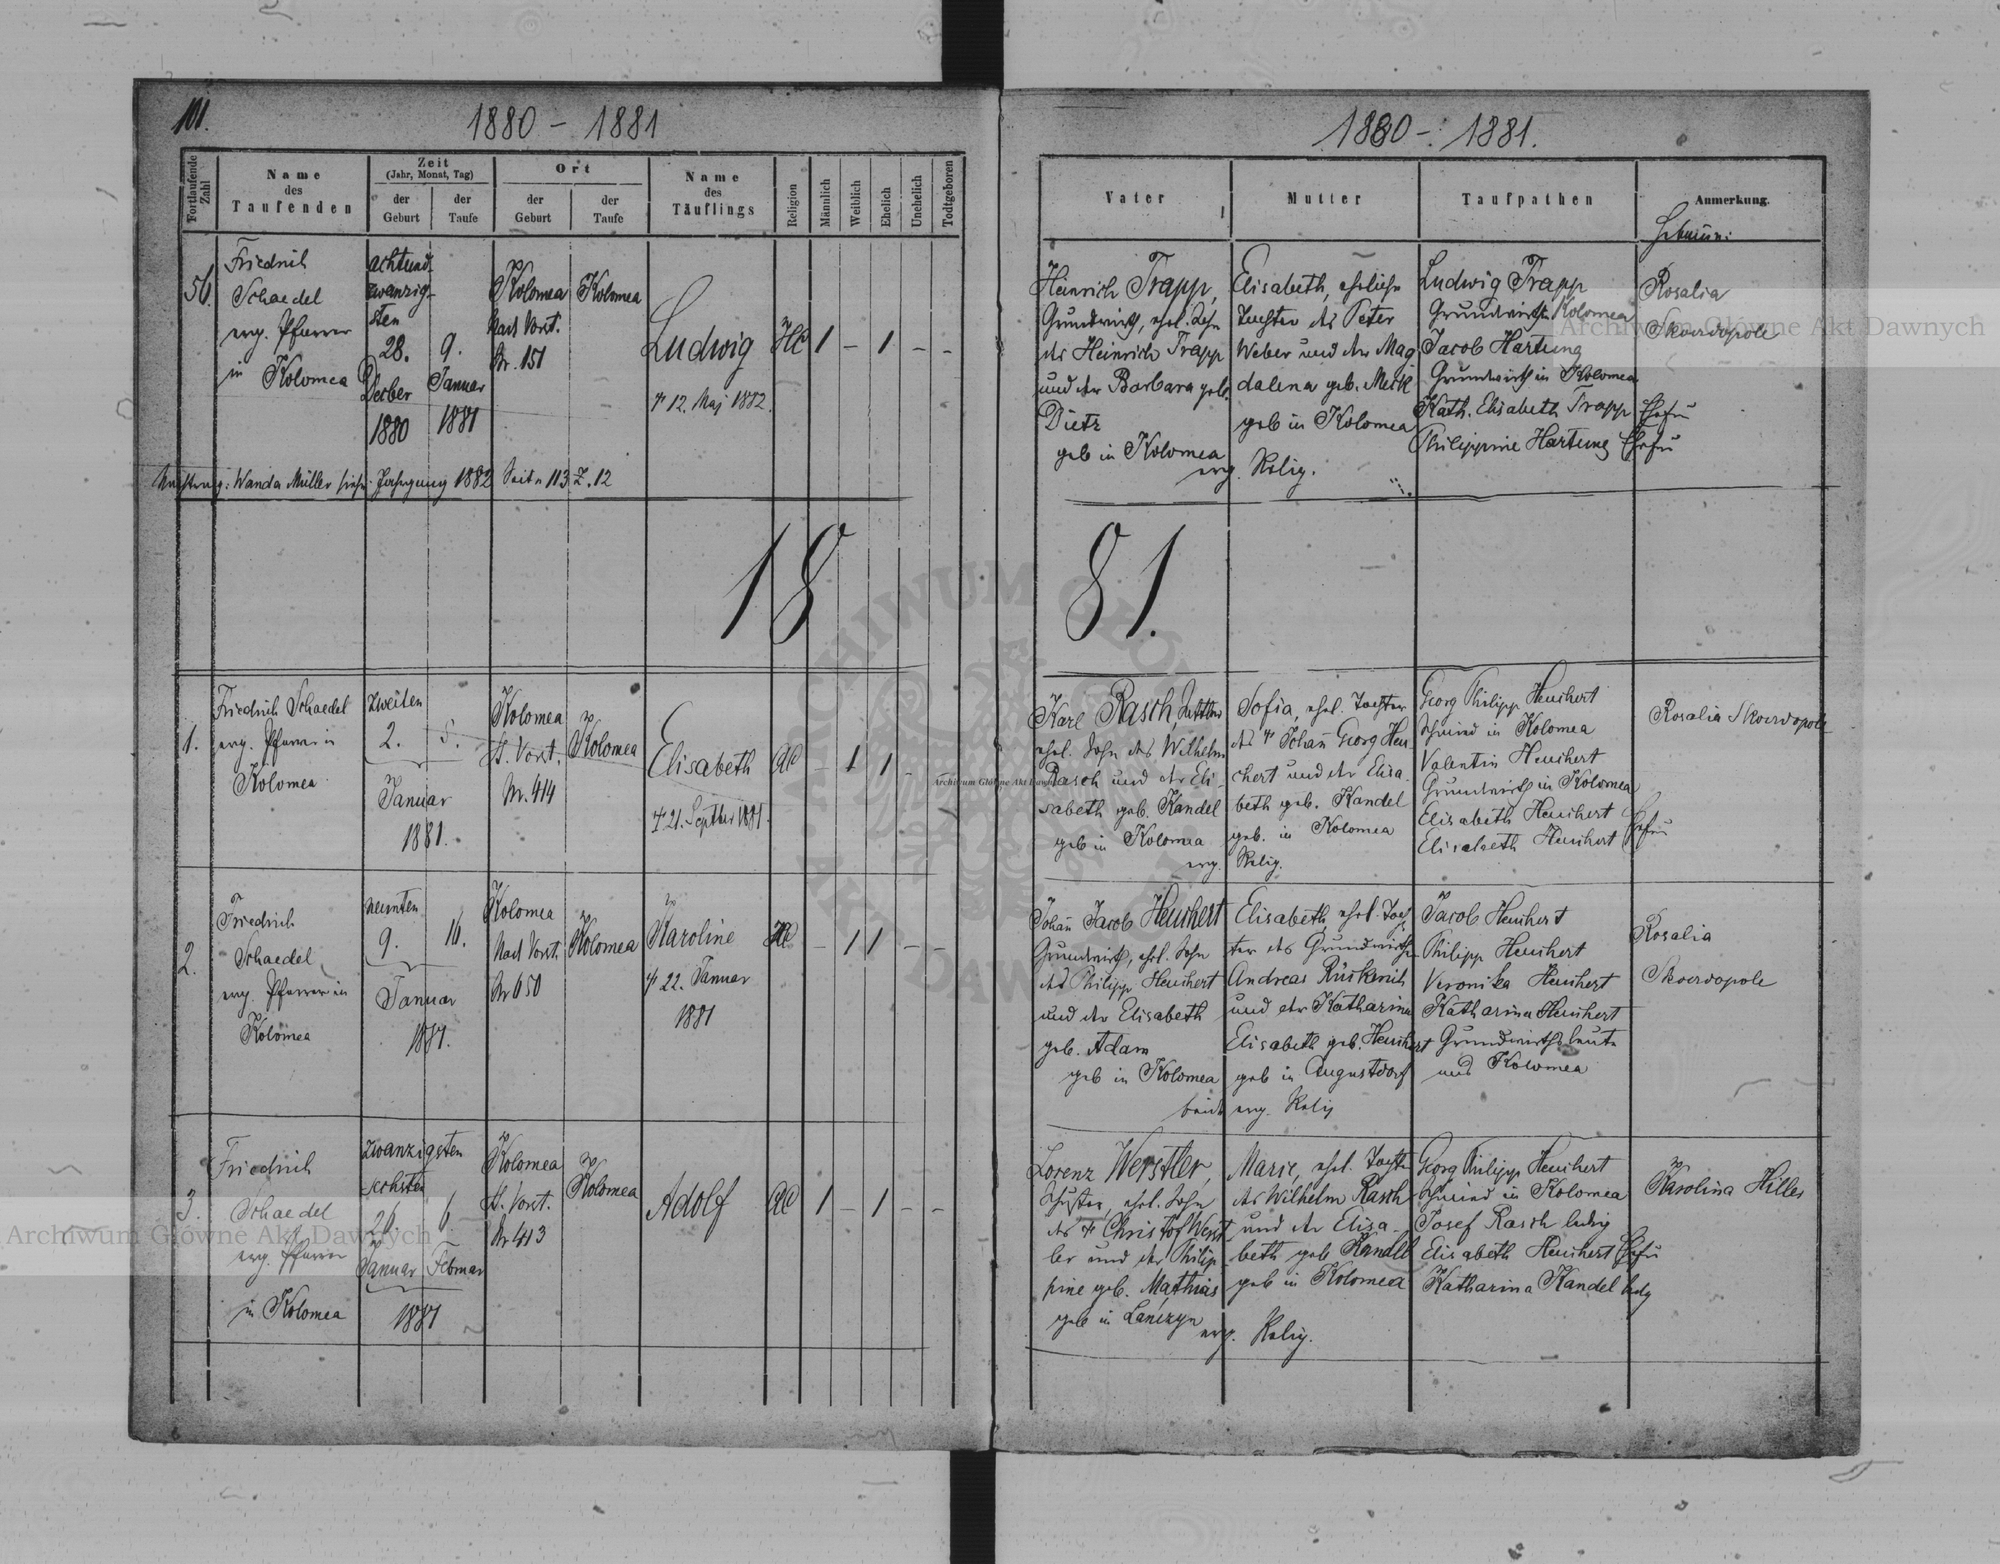 101.
1880 - 1881
Fortlaufende Zahl
Name des Taufenden
Zeit
(Jahr, Monat, Tag)
der Geburt
der Taufe
Ort
der Geburt
der Taufe
Name des Täuflings
Religion
Männlich
Weiblich
Ehelich
Unehelich
Todtgeboren
56.
Friedrich
Schaedel
evg. Pfarrer
in Kolomea
achtund
zwanzig-
sten
28.
Dezber
1880
9.
Januar
1881
Kolomea
Nad. Vorst.
Nr. 151
Kolomea
Ludwig
† 12. Maj 1882.
HC
1 - 1 - -
Nachtrag: Wanda Müller siehe Jahrgang 1882 Seite 113 Z. 12
18
1.
Friedrich Schaedel
evg. Pfarrer in
Kolomea
zweiten
2. 5.
Januar
1881.
Kolomea
St. Vorst.
Nr. 414
Kolomea
Elisabeth
† 21. Septber 1881.
AC
- 1 1 - -
2.
Friedrich
Schaedel
evg. Pfarrer in
Kolomea
neunten
9. 16.
Januar
1881.
Kolomea
Nad. Vorst.
Nr 650
Kolomea
Karoline
† 22. Januar
1881
HC
- 1 1 - -
3.
Friedrich
Schaedel
evg. Pfarrer
in Kolomea
zwanzigsten
sechsten
26. 6.
Januar Februar
1881
Kolomea
St. Vorst.
Nr 413
Kolomea
Adolf
AC
1 - 1 - -
1880 - 1881.
Vater
Mutter
Taufpathen
Anmerkung.
Hebamme:
Heinrich Trapp,
Grundwirth, ehel. Sohn
des Heinrich Trapp
und der Barbara geb.
Dietz
geb in Kolomea
Elisabeth, eheliche
Tochter des Peter
Weber und der Mag
dalena geb. Merk
geb in Kolomea
evg. Relig.
Ludwig Trapp
Grundwirth in Kolomea
Jacob Hartung
Grundwirth in Kolomea
Kath. Elisabeth Trapp Ehefr
Philippine Hartung Ehefr
Rosalia
Skoordopole
81.
Karl Rasch,
ehel. Sohn des Wilhelm
Rasch und der Eli-
sabeth geb. Kandel
geb in Kolomea
Sofia, ehel. Tochter
des † Johan Georg Heu
chert und der Elisa-
beth geb. Kandel
geb. in Kolomea
evg. Relig.
Georg Philipp Heuchert
Schmied in Kolomea
Valentin Heuchert
Grundwirth in Kolomea
Elisabeth Heuchert
Elisabeth Heuchert Ehefr
Rosalia Skoordopole
Johan Jacob Heuchert
Grundwirth, ehel. Sohn
des Philipp Heuchert
und der Elisabeth
geb. Adam
geb in Kolomea
Elisabeth, ehel. Toch
ter des Grundwirthe
Andreas
und der Katharina
Elisabeth geb. Heuchert
geb in Augustdorf
beide evg. Relig
Jacob Heuchert
Philipp Heuchert
Veronika Heuchert
Katharina Heuchert
Grundwirthsleute
aus Kolomea
Rosalia
Skoordopole
Lorenz Werstler,
Schuster, ehel. Sohn
des † Christof Werst
ler und der Philip
pine geb. Mathias
geb in Lanczyn
Marie, ehel. Tochter
des Wilhelm Rasch
und der Elisa-
beth geb Kandel
geb in Kolomea
evg. Relig.
Georg Philipp Heuchert
Schmied in Kolomea
Josef Rasch ledig
Elisabeth Heuchert Ehefr
Katharina Kandel ledig
Karolina Hilles
Archiwum Główne Akt Dawnych
Archiwum Główne Akt Dawnych
Archiwum Główne Akt Dawnych
ARCHIWUM GŁÓWNE AKT DAWNYCH